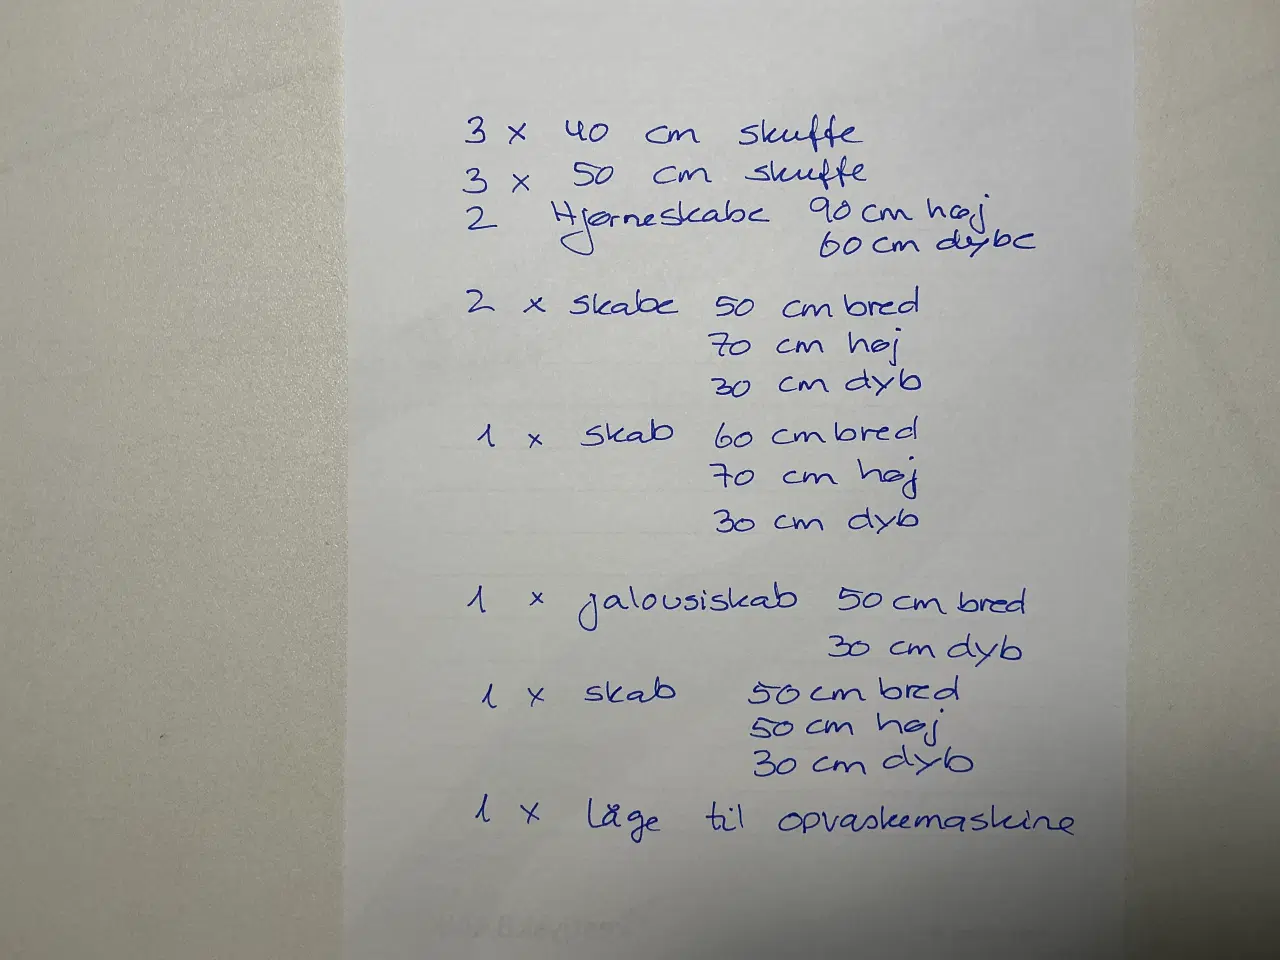 3 x 40 cm skuffe
3 x 50 cm skuffe
2 Hjørneskabe 90 cm høj
60 cm dybe
2 x skabe 50 cm bred
70 cm høj
30 cm dyb
1 x skab 60 cm bred
70 cm høj
30 cm dyb
1 x jalousiskab 50 cm bred
30 cm dyb
1 x skab 50 cm bred
50 cm høj
30 cm dyb
1 x låge til opvaskemaskine